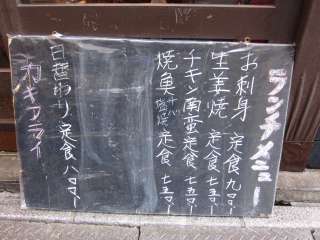 ランチメニュー
お刺身 定食 九〇〇
生姜焼 定食 七五〇
チキン南蛮 定食 七五〇
焼魚 サバ 塩焼 定食 七五〇
日替わり 定食 八〇〇
カキフライ